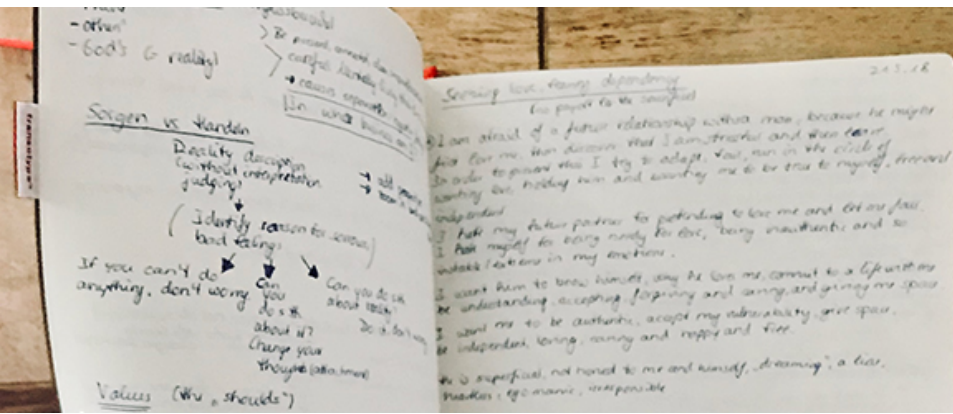 - other"
- God's (= reality)
Be present, connected,
Sorgen vs Handeln
Reality description
(without interpretation
judging)
(Identify reason for serious
bad feelings)
If you can't do
anything, don't worry.
Can
you
do sth
about it?
Change your
thoughts (attachment)
Can you do sth
about reality?
Do it, don't worry
Values (Why "shoulds")
transotype
21.5.18
Seeking love, fearing dependency
I am afraid of a future relationship with a man, because he might
first love me, then discover that I am stressful and then leave.
In order to prevent this I try to adapt, fail, run in the circle of
wanting love, holding him and wanting me to be true to myself, free and
independent.
I hate my future partner for pretending to love me and let me fall.
I hate myself for being needy for love, being inauthentic and so
unstable/extreme in my emotions.
I want him to know himself, say he loves me, commit to a life with me
be understanding, accepting, forgiving and caring, and giving me space.
I want me to be authentic, accept my vulnerability, give space,
be independent, loving, caring and happy and free.
He is superficial, not honest to me and himself, "dreaming", a liar,
heartless, egomanic, irresponsible